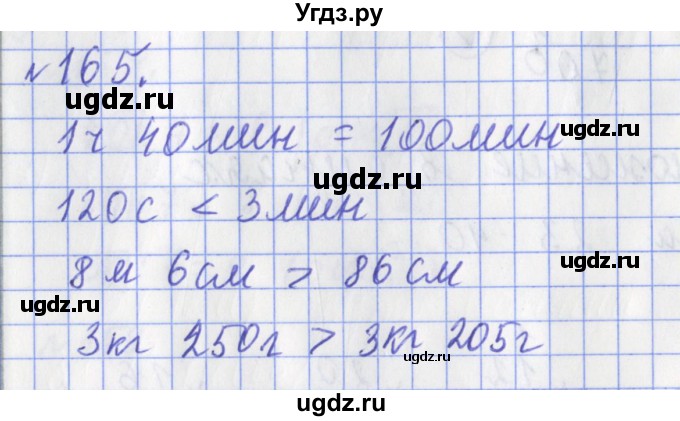 Угдз.ру
№165.
ugdz.ru
ugdz.ru
1ч 40мин = 100мин
ugdz.ru
120с < 3мин
8м 6см > 86см
ugdz.ru
ugdz.ru
3кг 250г > 3кг 205г
ugdz.ru
ugdz.ru